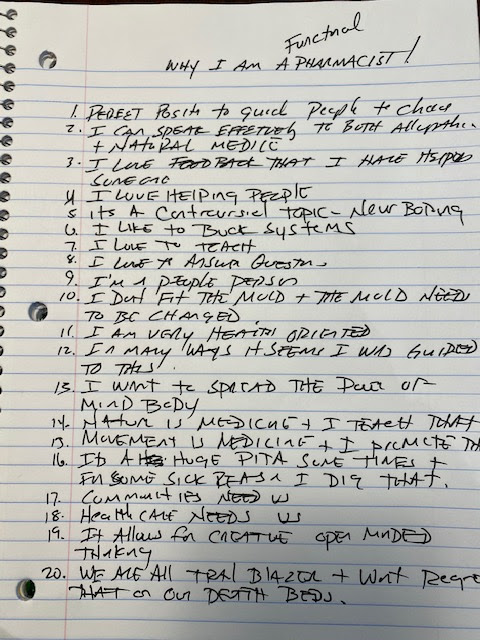 Functional
WHY I AM A PHARMACIST!
1. PERFECT POSITN to guide People to chaos
2. I CAN SPEAK EFFECTIVELY TO BOTH Allopathic
+ NATURAL MEDICE
3. I LOVE FOODBACK THAT I HAVE HELPED
SOMEONE
4 I LOVE HELPING PEOPLE
5 ITS A Controversial TOPIC - Never BORING
6. I LIKE TO BUCK SYSTEMS
7. I LOVE TO TEACH
8. I LOVE TO ANSWER QUESTIONS
9. I'M A PEOPLE PERSON
10. I DONT FIT THE MOLD + THE MOLD NEEDS
TO BE CHANGED.
11. I AM VERY HEALTH ORIENTED
12. IN MANY WAYS IT SEEMS I WAS GUIDED
TO THIS.
13. I WANT TO SPREAD THE POWER OF
MIND BODY
14. NATURE IS MEDICINE + I TEACH THAT
15. MOVEMENT IS MEDICINE + I PROMOTE TH
16. ITS A HUGE PITA SOME TIMES +
FOR SOME SICK REASON I DIG THAT.
17. COMMUNITIES NEED US
18. HealthCARE NEEDS US
19. It Allows for CREATIVE open MINDED
THINKING
20. WE ARE All TRAIL BLAZER + Wont Regre
THAT on Our DEATH BEDS.